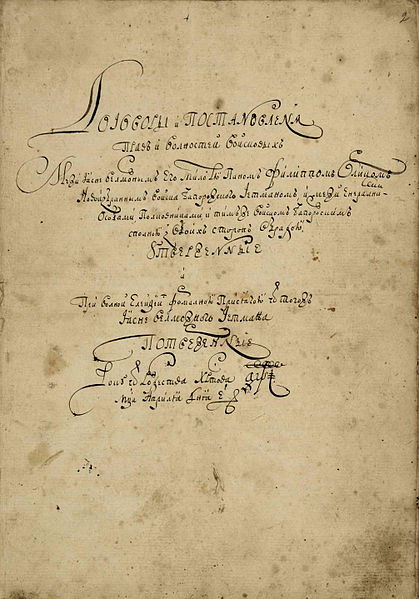 2
Договоры и Постановленя
Правъ и волностей войсковыхъ
Межи Ясне велможнымъ Его Млстю Паномъ Филиппомъ Орликомъ
Новоизбраннимъ войска Запорозкого Гетманомъ, и межи Енералними
Особами Полковниками и тимъ же войскомъ Запорозкимъ
сполною з обоихъ сторонъ обрадою
Утверженные
и
При волной Елекции формалною присягою ѿ тогожъ
Ясне велможного Гетмана
Потверженные
Року ѿ Рождества Хртова ҂аѱі
Мця Априля дня е